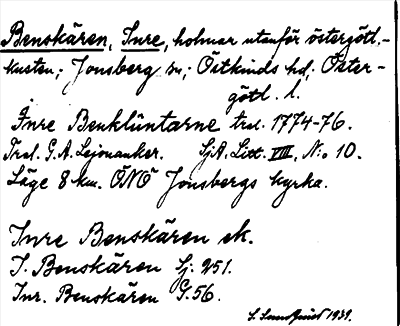 Benskären, Inre, holmar utanför östergötl.-
kusten; Jonsberg sn; Östkinds hd; Öster-
götl. l.
Inre Benklüntarne trol. 1774-76.
Trol. G. A. Lejonanker. SjA. Litt. VIII, N:o 10.
Läge 8 km. ÖNÖ Jonsbergs kyrka.
Inre Benskären ek.
I. Benskären Sj. 251.
Inr. Benskären G. 56.
1939.